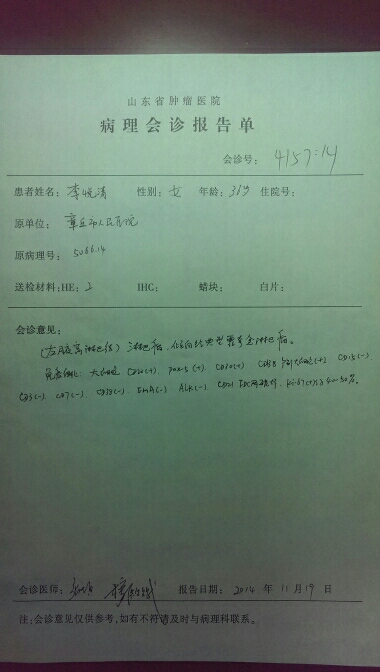 山东省肿瘤医院
病理会诊报告单
会诊号: 4157-14
患者姓名: 李悦清 性别: 女 年龄: 36岁 住院号:
原单位: 章丘市人民医院
原病理号: 5066.14
送检材料:HE: 2 IHC: 蜡块: 白片:
会诊意见:
(左腋窝淋巴结) 淋巴瘤,
免疫组化: 大细胞 CD20(+), PAX-5(+), CD30(+) CD15(-)
CD3(-), CD7(-), EMA(-) ALK(-), CD21 Ki-67(+) 40-50%.
会诊医师: 报告日期: 2014 年 11月 19日
注:会诊意见仅供参考,如有不符请及时与病理科联系。